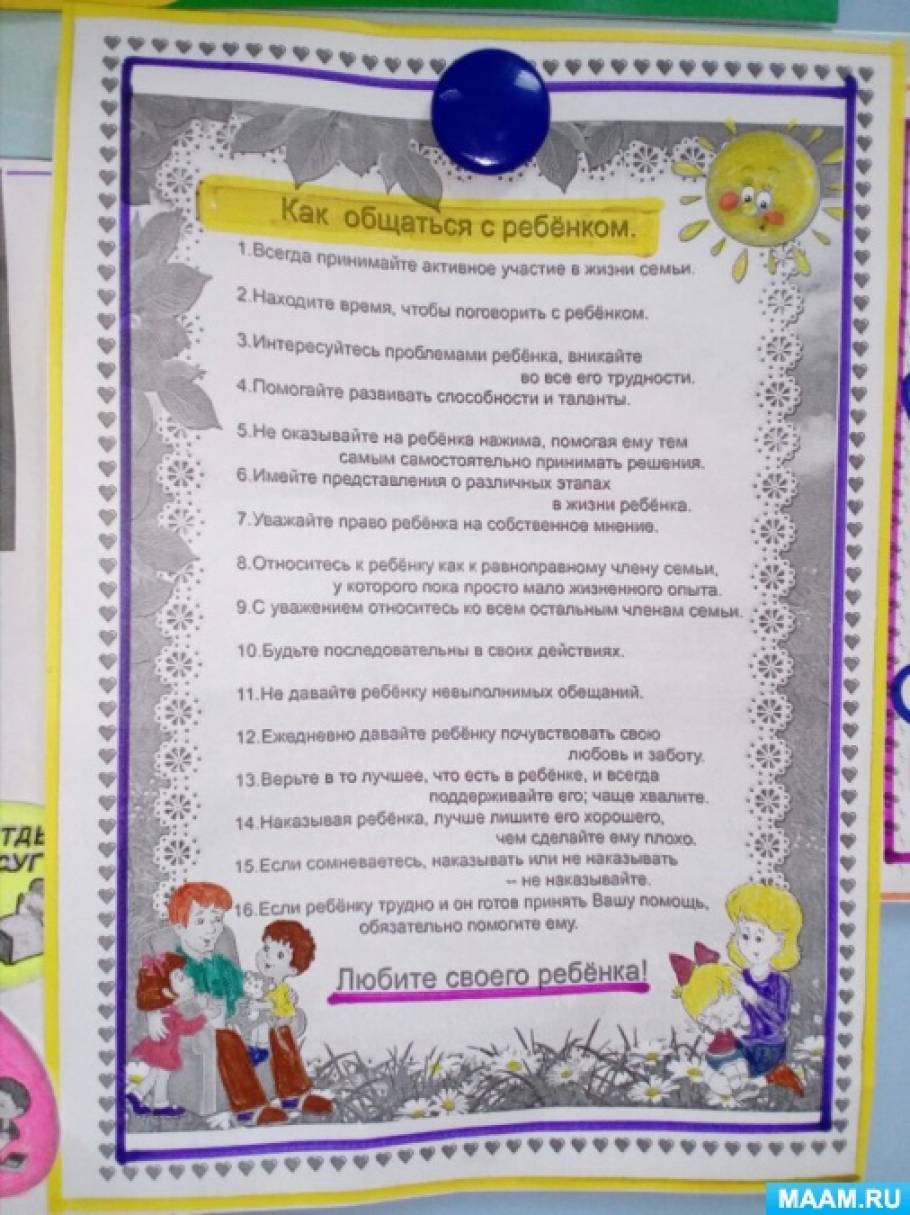 Как общаться с ребёнком.
1.Всегда принимайте активное участие в жизни семьи.
2.Находите время, чтобы поговорить с ребёнком.
3.Интересуйтесь проблемами ребёнка, вникайте
во все его трудности.
4.Помогайте развивать способности и таланты.
5.Не оказывайте на ребёнка нажима, помогая ему тем
самым самостоятельно принимать решения.
6.Имейте представления о различных этапах
в жизни ребёнка.
7.Уважайте право ребёнка на собственное мнение.
8.Относитесь к ребёнку как к равноправному члену семьи,
у которого пока просто мало жизненного опыта.
9.С уважением относитесь ко всем остальным членам семьи.
10.Будьте последовательны в своих действиях.
11.Не давайте ребёнку невыполнимых обещаний.
12.Ежедневно давайте ребёнку почувствовать свою
любовь и заботу.
13.Верьте в то лучшее, что есть в ребёнке, и всегда
поддерживайте его; чаще хвалите.
14.Наказывая ребёнка, лучше лишите его хорошего,
чем сделайте ему плохо.
15.Если сомневаетесь, наказывать или не наказывать
– не наказывайте.
16.Если ребёнку трудно и он готов принять Вашу помощь,
обязательно помогите ему.
Любите своего ребёнка!
MAAM.RU